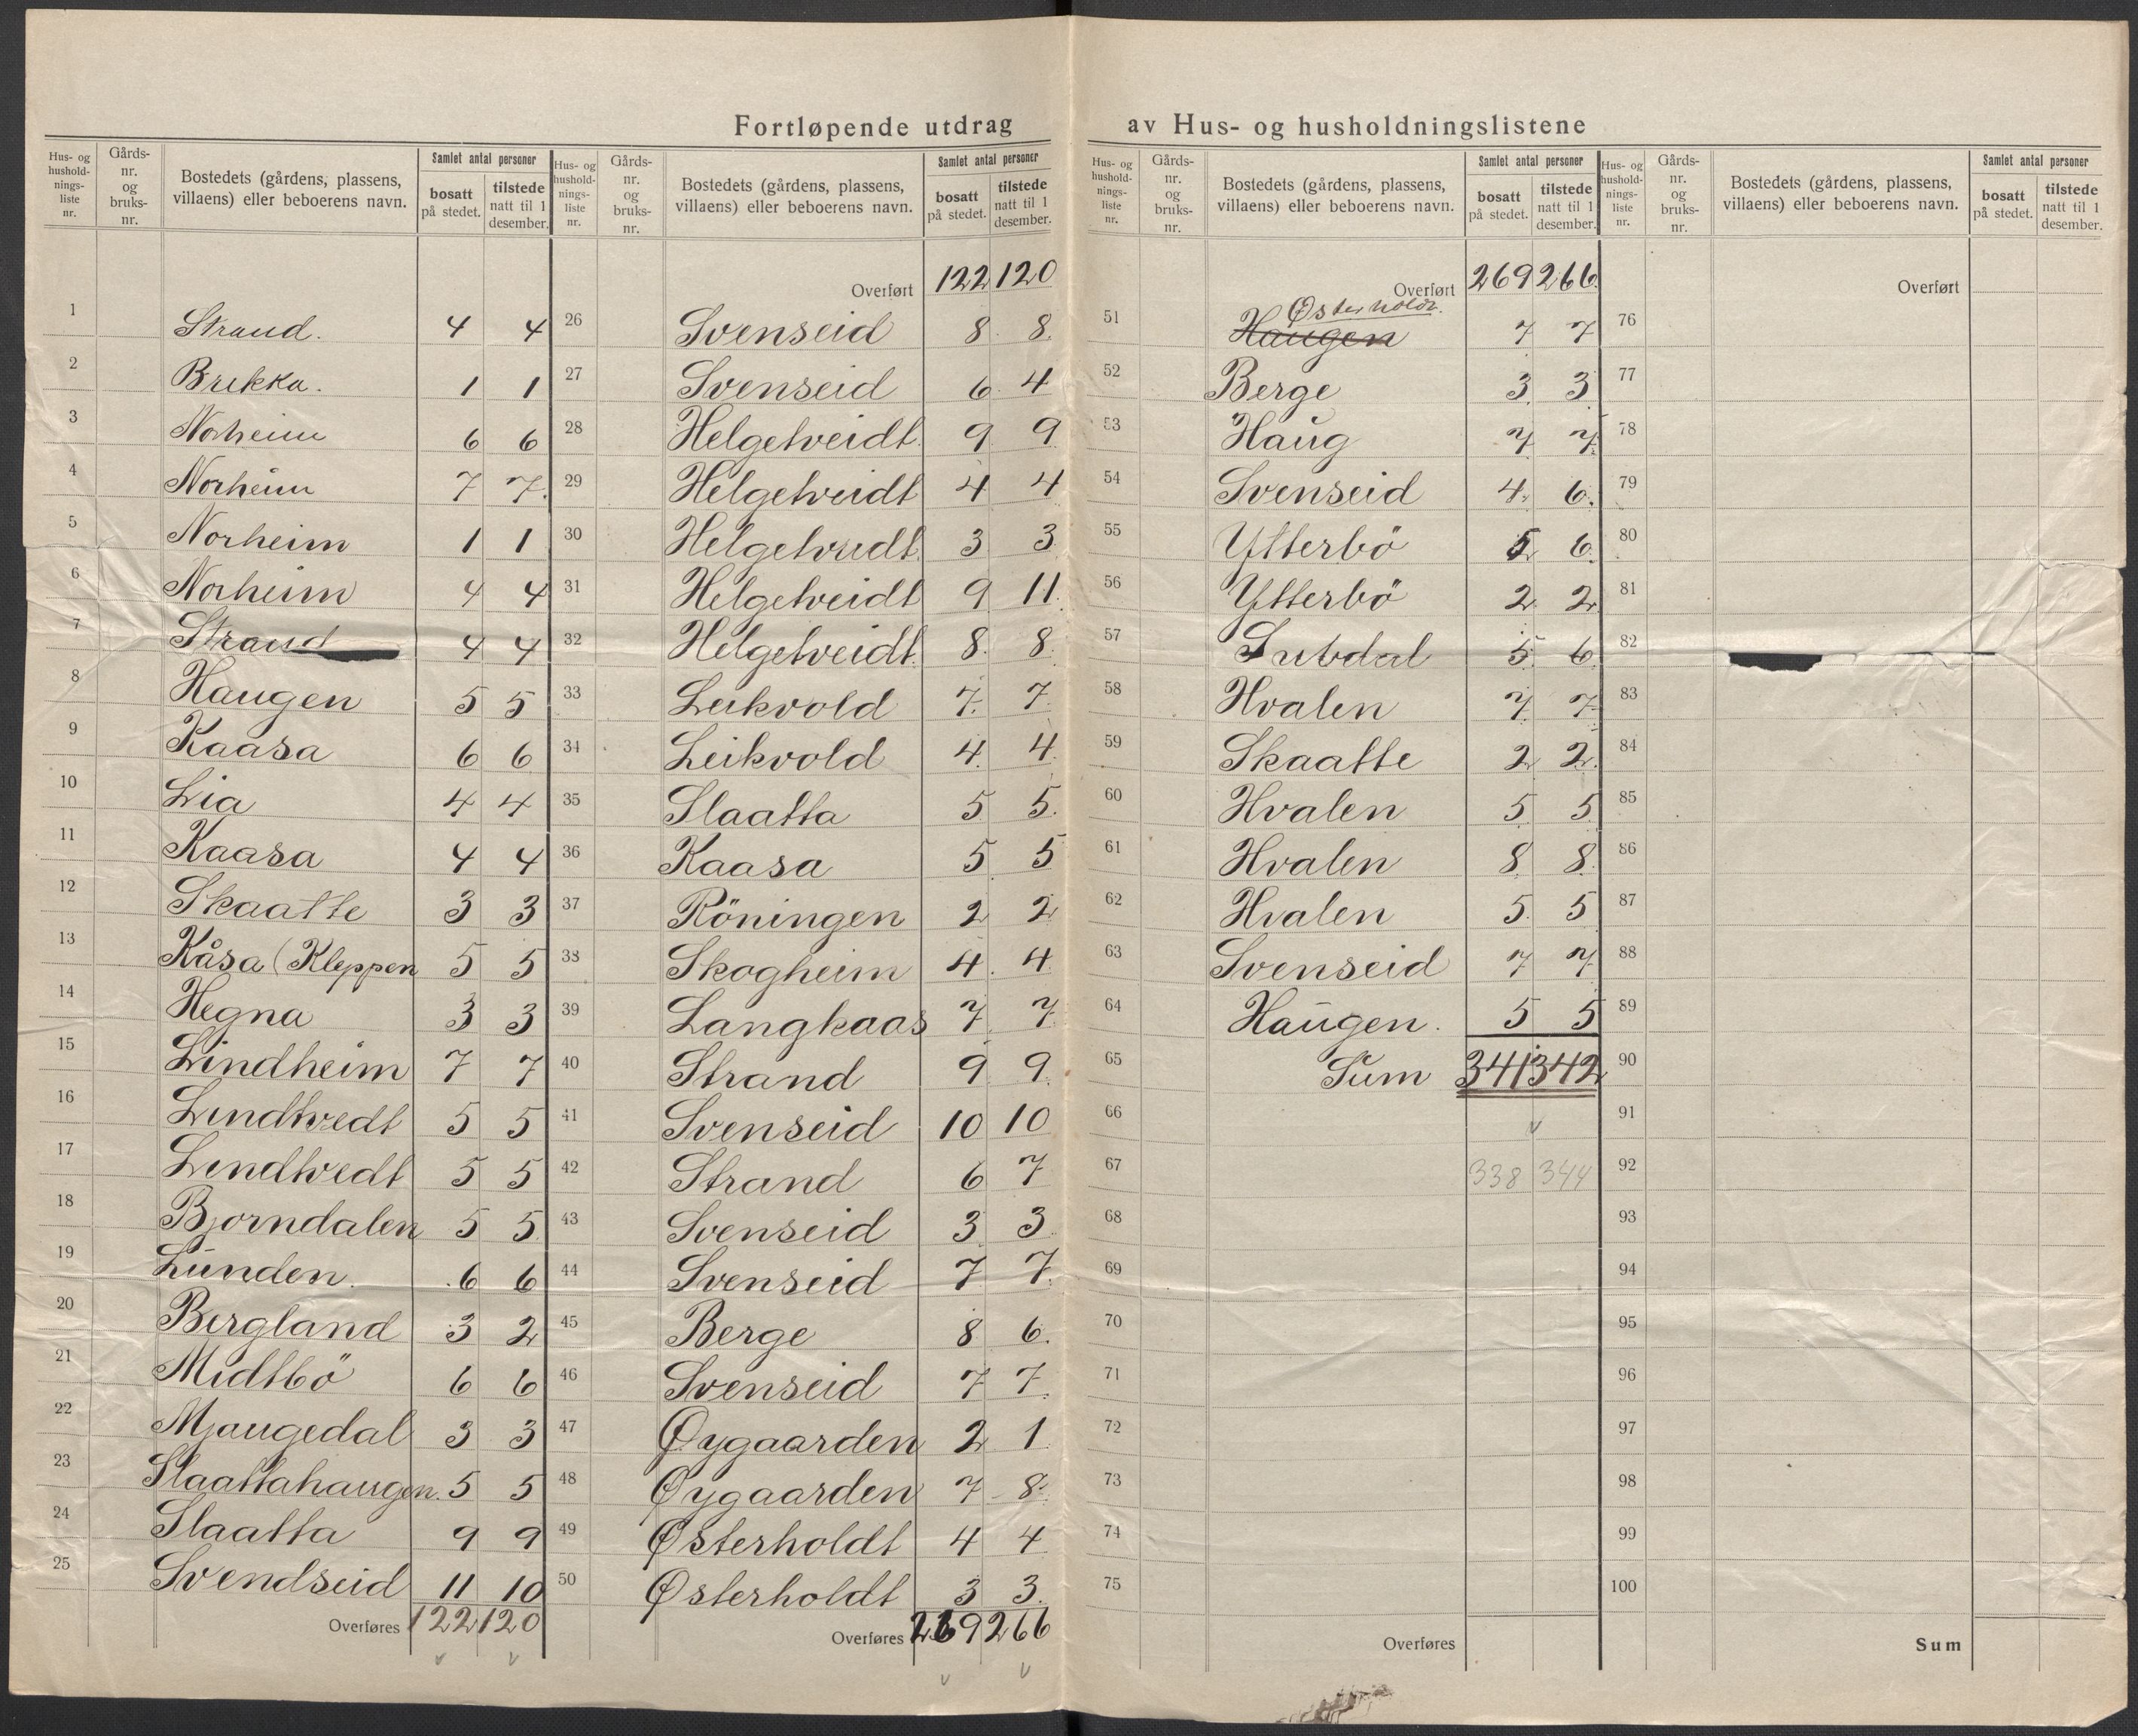 Fortløpende utdrag av Hus- og husholdningslistene
Hus- og husholdnings- liste nr. Gårds- nr. og bruks- nr. Bostedets (gårdens, plassens, villaens) eller beboerens navn. Samlet antal personer bosatt på stedet. tilstede natt til 1 desember.
1 Strand. 4 4
2 Brekka. 1 1
3 Norheim 6 6
4 Norheim 7 7.
5 Norheim 1 1
6 Norheim 4 4
7 Strand 4 4
8 Haugen 5 5
9 Kaasa 6 6
10 Lia 4 4
11 Kaasa 4 4
12 Skaatte 3 3
13 Kåsa (Kleppen 5 5
14 Hegna 3 3
15 Lindheim 7 7
16 Lindtvedt 5 5
17 Lindtvedt 5 5
18 Bjorndalen 5 5
19 Lunden. 6 6
20 Bergland 3 2
21 Midtbö 6 6
22 Mjaugedal 3 3
23 Slaattahaugen. 5 5
24 Slaatta 9 9
25 Svendseid 11 10
Overføres 122 120
Hus- og husholdnings- liste nr. Gårds- nr. og bruks- nr. Bostedets (gårdens, plassens, villaens) eller beboerens navn. Samlet antal personer bosatt på stedet. tilstede natt til 1 desember.
Overført 122 120
26 Svenseid 8 8.
27 Svenseid 6 4
28 Helgetveidt 9 9
29 Helgetveidt 4 4
30 Helgetveidt 3 3
31 Helgetveidt 9 11.
32 Helgetveidt 8. 8.
33 Leikvold 7. 7
34 Leikvold 4. 4.
35 Slaatta 5 5.
36 Kaasa 5 5
37 Röningen 2 2
38 Skogheim 4. 4
39 Langkaas 7 7
40 Strand 9 9.
41 Svenseid 10 10
42 Strand 6 7
43 Svenseid 3 3.
44 Svenseid 7 7.
45 Berge 8 6.
46 Svenseid 7 7.
47 Øygaarden 2 1
48 Øygaarden 7 8.
49 Østerholdt 4 4
50 Østerholdt 3 3.
Overføres 269 266
Hus- og husholdnings- liste nr. Gårds- nr. og bruks- nr. Bostedets (gårdens, plassens, villaens) eller beboerens navn. Samlet antal personer bosatt på stedet. tilstede natt til 1 desember.
Overført 269 266.
Østerholdt.
51 Haugen 7 7
52 Berge 3 3
53 Haug 7 7
54 Svenseid 4. 6.
55 Ytterbö 5 6
56 Ytterbö 2 2
57 5 6
58 Hvalen 7 7
59 Skaatte 2 2
60 Hvalen 5 5
61 Hvalen 8 8
62 Hvalen 5. 5
63 Svenseid 7 7
64 Haugen. 5 5
65 Sum 341 342
66
67 338 344
68
69
70
71
72
73
74
75
Overføres
Hus- og husholdnings- liste nr. Gårds- nr. og bruks- nr. Bostedets (gårdens, plassens, villaens) eller beboerens navn. Samlet antal personer bosatt på stedet. tilstede natt til 1 desember.
Overført
76
77
78
79
80
81
82
83
84
85
86
87
88
89
90
91
92
93
94
95
96
97
98
99
100
Sum